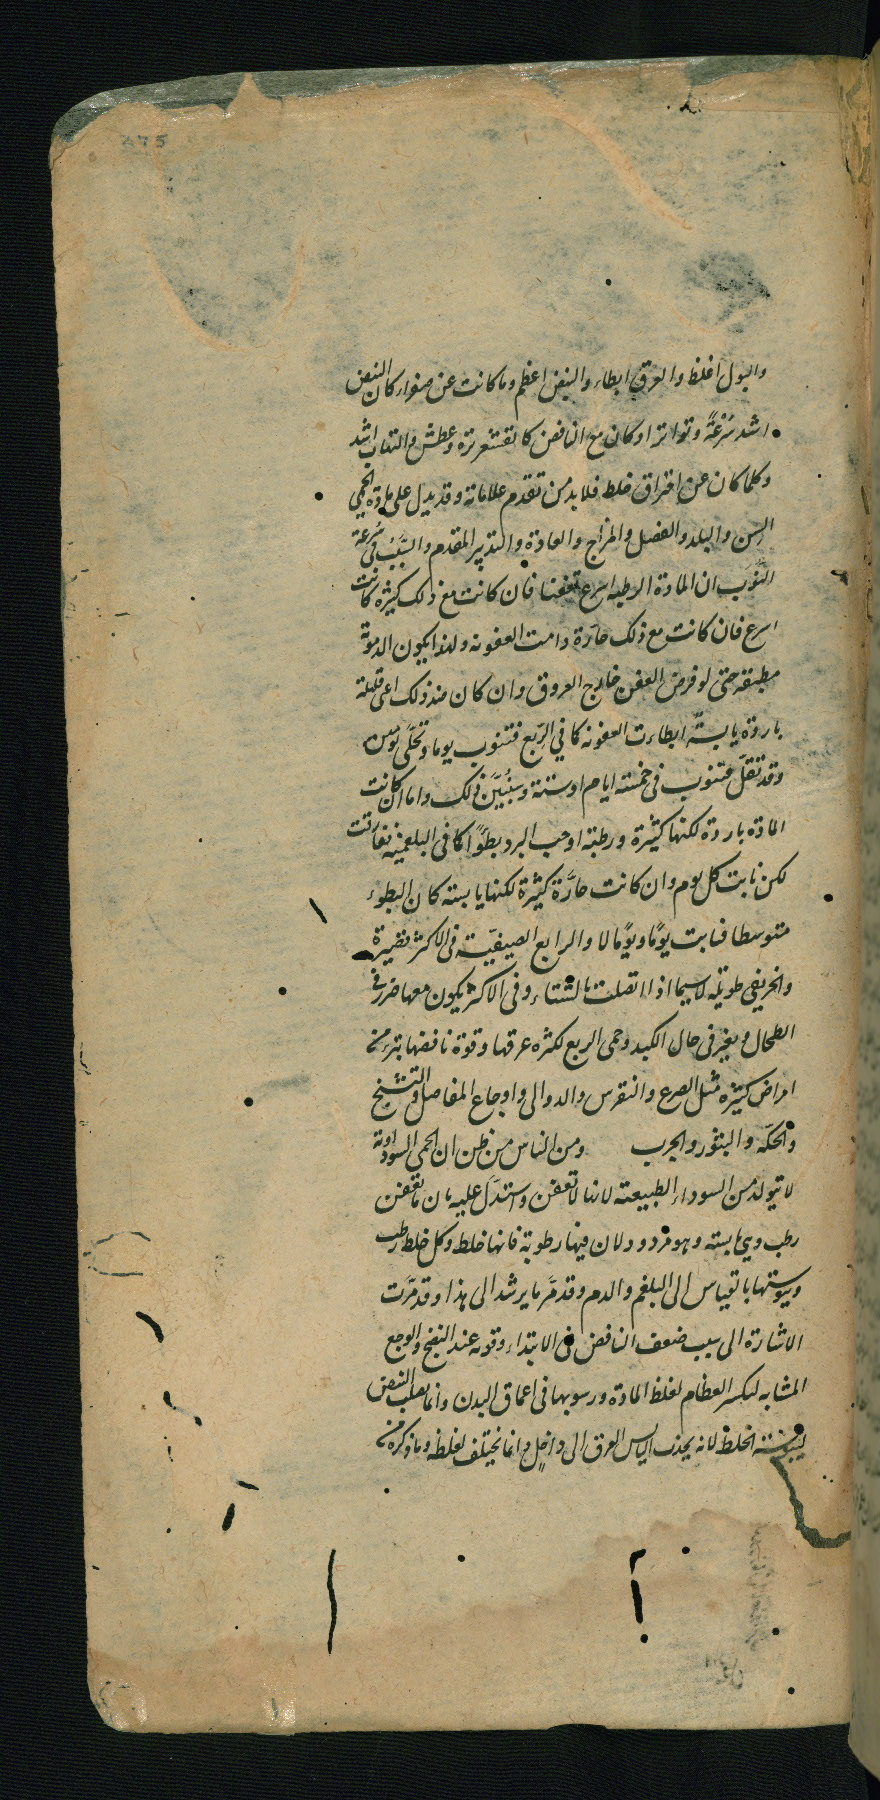 والبول اغلظ والعرق ابطاء والنبض اعظم وما كانت عن صفراء كان النبض
اشد سُرْعَةً وتواترا وكان مع النافض كا قشعريرة وعطش والتهاب اشد
وكلما كان عن احتراق خلط فلا بد من تقدم علاماته وقد يدل على مادة الحمى
السن والبلد والفصل والمزاج والعادة والتدبير المقدم والسَّبَبُ فى سُرعة
النُّوَب ان المادة الرطبه اسرع تعفنا فان كانت مع ذلك كثيرة كانت
اسرع فان كانت مع ذلك حارّة دامت العفونه ولهذا يكون الدموية
مطبقه حتى لو فرض العفن خارج العروق وان كان ضد ذلك اعى قليلة
باردة يابسةً ابطاءت العفونه كما في الرّبع فتنوب يوما وتخلّى يومين
وقد تقلّ فتنوب فى خمسة ايام او ستة وسَنُبيّن ذلك واما ان كانت
المادة باردة لكنها كثيرة ورطبة اوجب البرد بطؤًا كما فى البلغمية ففارقت
لكن نابت كل يوم وان كانت حارَّة كثيرة لكنها يابسة كان البطوء
متوسطا فنابت يومًا ويومًا لا والرابع الصيفيّة فى الاكثر قصيرة
والخريفى طويلة لا سيما اذا اتصلت بالشتاء وفى الاكثر يكون معها ضرر فى
الطحال ويغير فى حال الكبد وحمى الربع لكثرة عرقها وقوة نافضها تبرئ من
امراض كثيرة مثل الصرع والنقرس والدوالى واوجاع المفاصل والتشنج
والحكّه والبثور والجرب ومن الناس من ظن ان الحمى السوداوية
لا تتولد من السوداء الطبيعية لانها لا تعفن واستدلّ عليه بان ما تعفن
رطب وهى يابسه وهو مردود لان فيها رطوبة فانها خلط وكل خلط رطب
ويبوستها بالقياس الى البلغم والدم وقد مَرَّ ما يرشد الى هذا وقد مَرَّت
الاشارة الى سبب ضعف النافض فى الابتداء وقوته عند النضج والوجع
المشابه لتكسر العظام لغلظ المادة ورسوبها فى اعماق البدن وانما يصلب النبض
ليبوسة الخلط لانه يجذب اليابس العرق الى داخل وانما يختلف لغلظه وما ذكره من